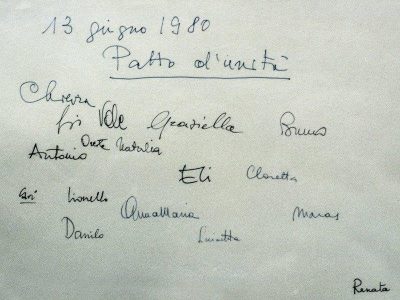 13 giugno 1980
Patto d'unità
Chiezza
Gis Vale Graziella Bruno
Antonio Oreta Natalia
Eli Cloretta
Cari Lionello AnnaMaria Maras
Danilo Luisetta
Renata